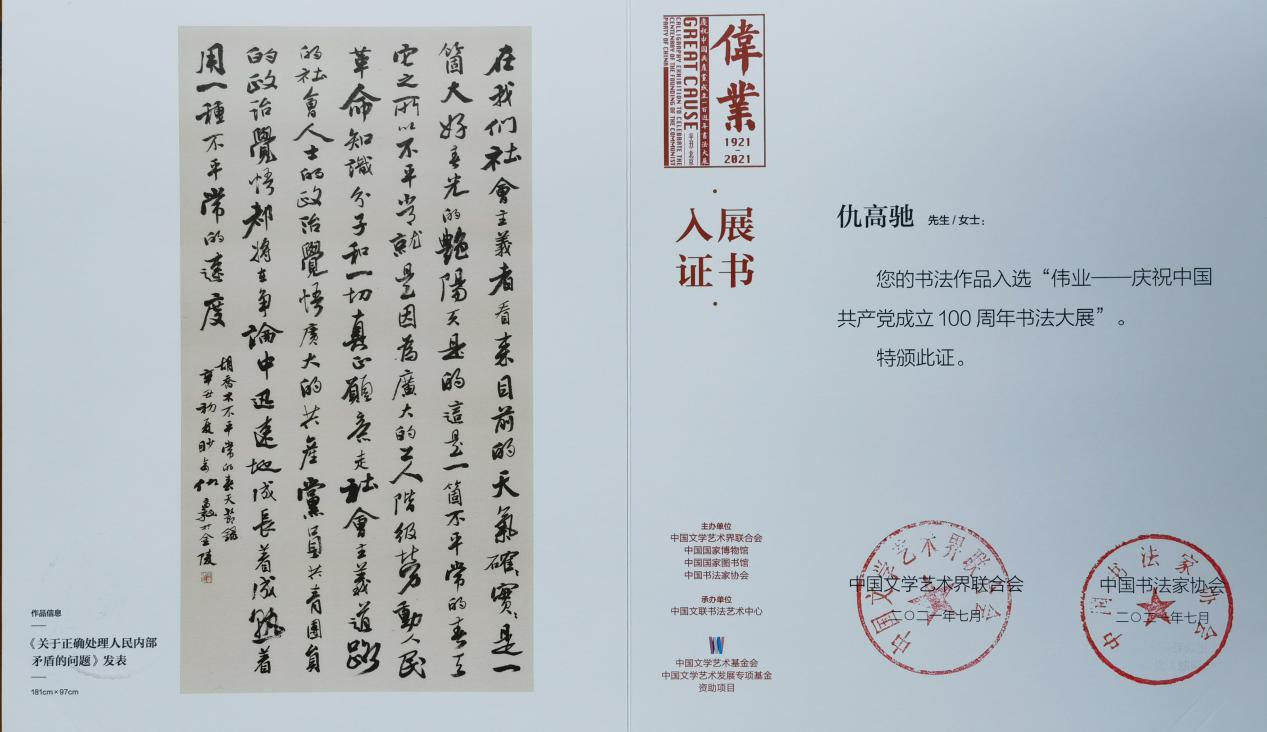 在我们社會主義者看来目前的天氣確實是一
箇大好春光的艷陽天是的這是一箇不平常的春天
它之所以不平常就是因為廣大的工人階級劳動人民
革命知識分子和一切真正願意走社會主義道路
的社會人士的政治覺悟廣大的共産黨員共青團員
的政治覺悟都将在争論中迅速地成長着成熟着
用一種不平常的速度
胡喬木不平常的春天節録
辛丑初夏 仇高 于金陵
作品信息
《关于正确处理人民内部
矛盾的问题》发表
181cm×97cm
偉業
1921
-
2021
慶祝中國共產黨成立一百週年書法大展
GREAT CAUSE
CALLIGRAPHY EXHIBITION TO CELEBRATE THE
CENTENARY OF THE FOUNDING OF THE COMMUNIST
PARTY OF CHINA
入展
证书
仇高驰 先生/女士：
您的书法作品入选“伟业——庆祝中国
共产党成立100周年书法大展”。
特颁此证。
主办单位
中国文学艺术界联合会
中国国家博物馆
中国国家图书馆
中国书法家协会
承办单位
中国文联书法艺术中心
中国文学艺术基金会
中国文学艺术发展专项基金
资助项目
中国文学艺术界联合会
二〇二一年七月
中国文学艺术界联合会
中国书法家协会
二〇二一年七月
中国书法家协会